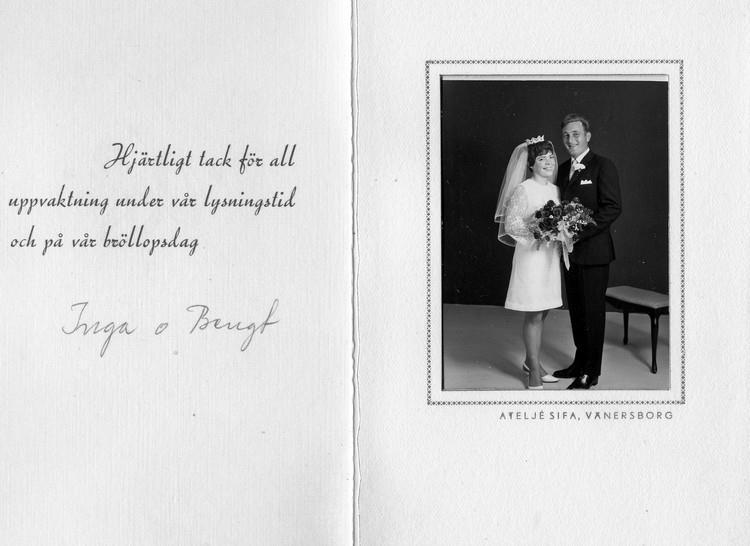 Hjärtligt tack för all
uppvaktning under vår lysningstid
och på vår bröllopsdag
Inga o Bengt
ATELJÉ SIFA, VÄNERSBORG